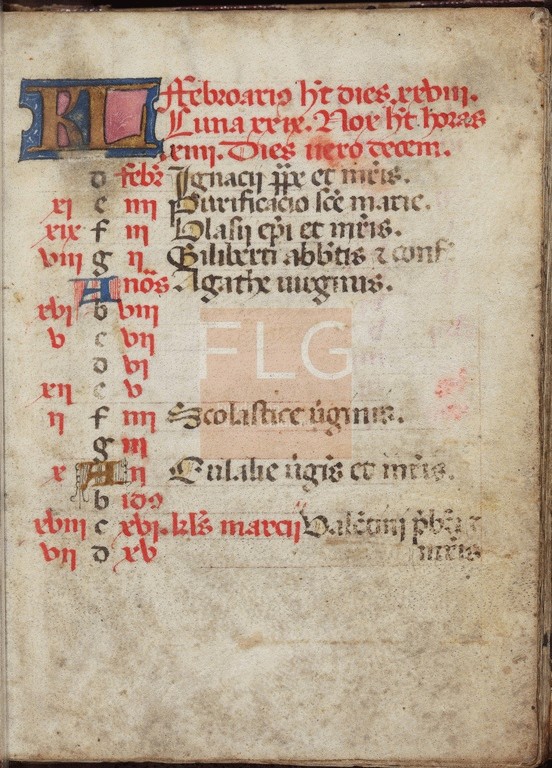 KL ffebroariꝰ ht dies. xxviii.
Luna xxix. Nox ht horas
xviii. Dies uero decem.
d febr Ignacij ppe et mris.
xi e iiij Purificacio sce marie.
xix f iij Blasij epi et mris.
viii g ij Giliberti abbtis ⁊ conf
A noś Agathe uirginis.
xvi b viii
v c vii
d vi
xii e v
ii f iiij Scolastice uginis.
g iij
x A ij Eulalie ugis et mris.
b idꝰ
xviii c xvi. kls marcij Valētini pbri ⁊
vii d xv mris
FLG